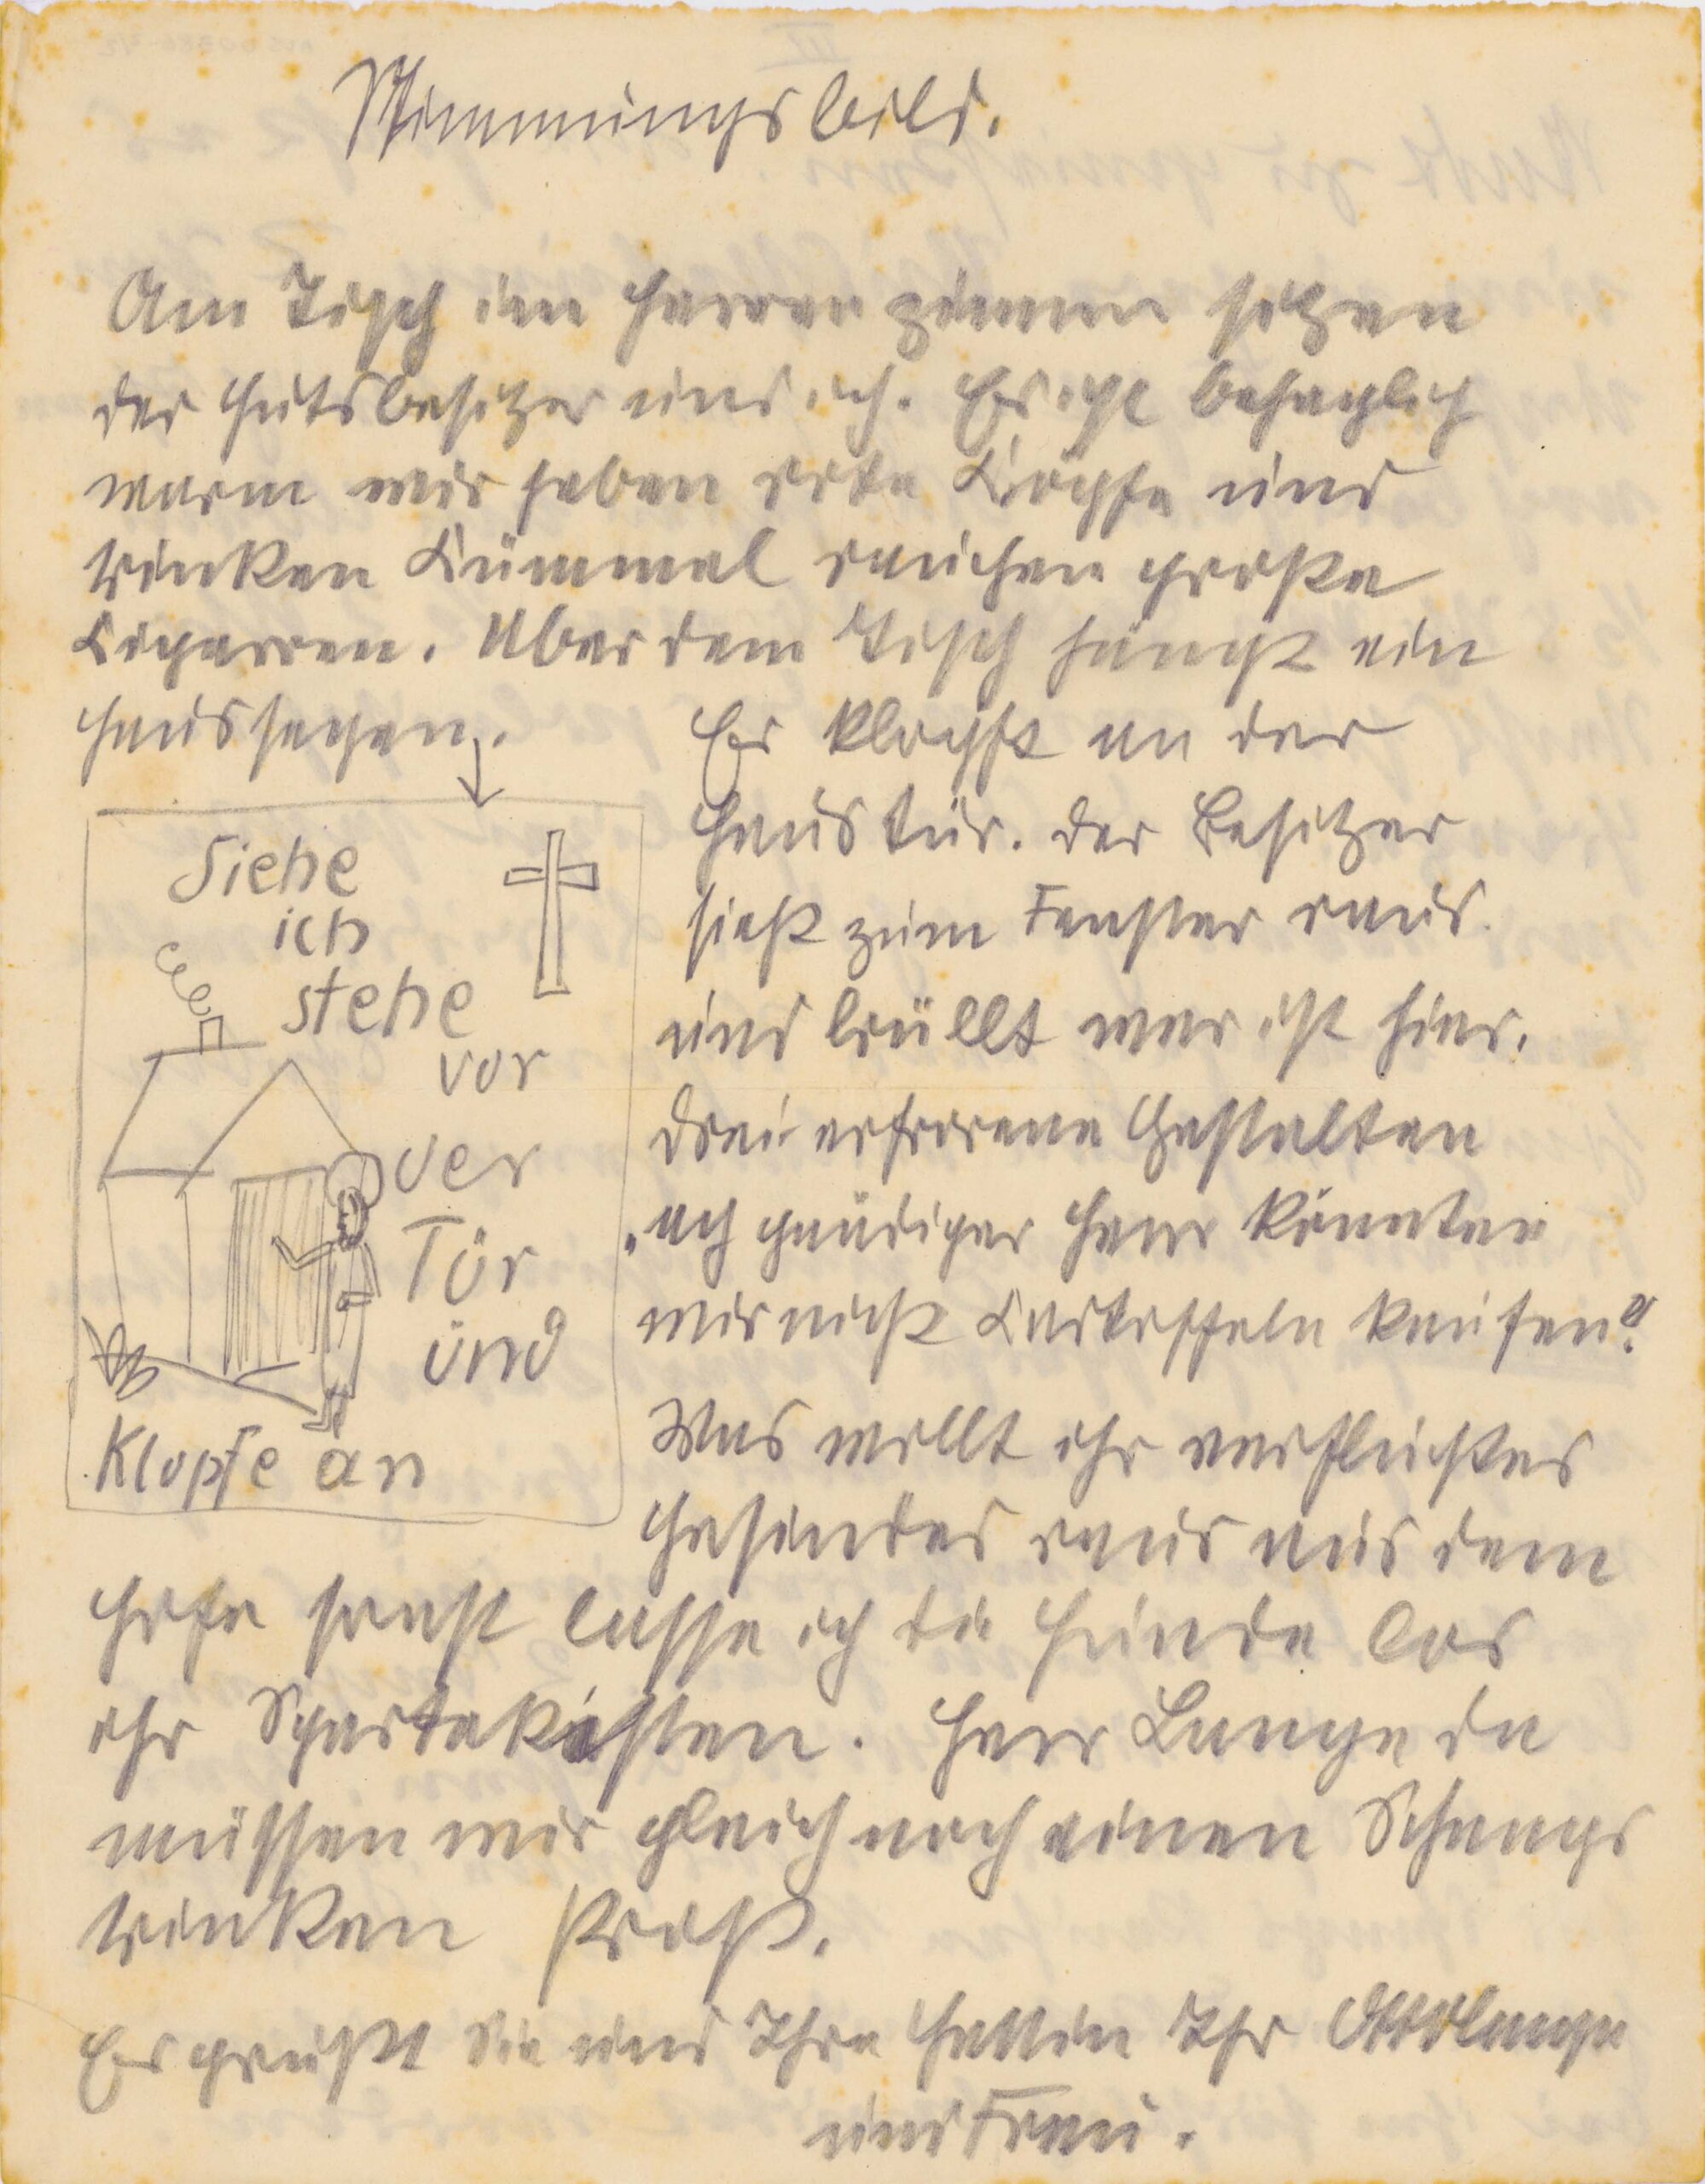 Stimmungsbild.
Am Tisch im Herrenzimmer sitzen
der Gutsbesitzer und ich. Es ist behaglich
warm wir haben rote Köpfe und
trinken Kümmel rauchen große
Cigarren. Über dem Tisch hängt ein
Haussegen.
Siehe
ich
stehe
vor
der
Tür
und
Klopfe an
Es klopft an der
Haustür. der Besitzer
sieht zum Fenster raus.
und brüllt wer ist hier.
Drei erfrorene Gestalten
"ach gnädiger Herr könnten
wir nicht Kartoffeln kaufen"?
Was wollt ihr verfluchtes
Gesindel raus aus dem
Hofe sonst lasse ich die Hunde los
ihr Spartakisten. Herr Lange da
müssen wir gleich noch einen Schnaps
trinken Prost.
Es grüßt Sie und Ihre Gattin Ihr Otto Lange
und Frau.